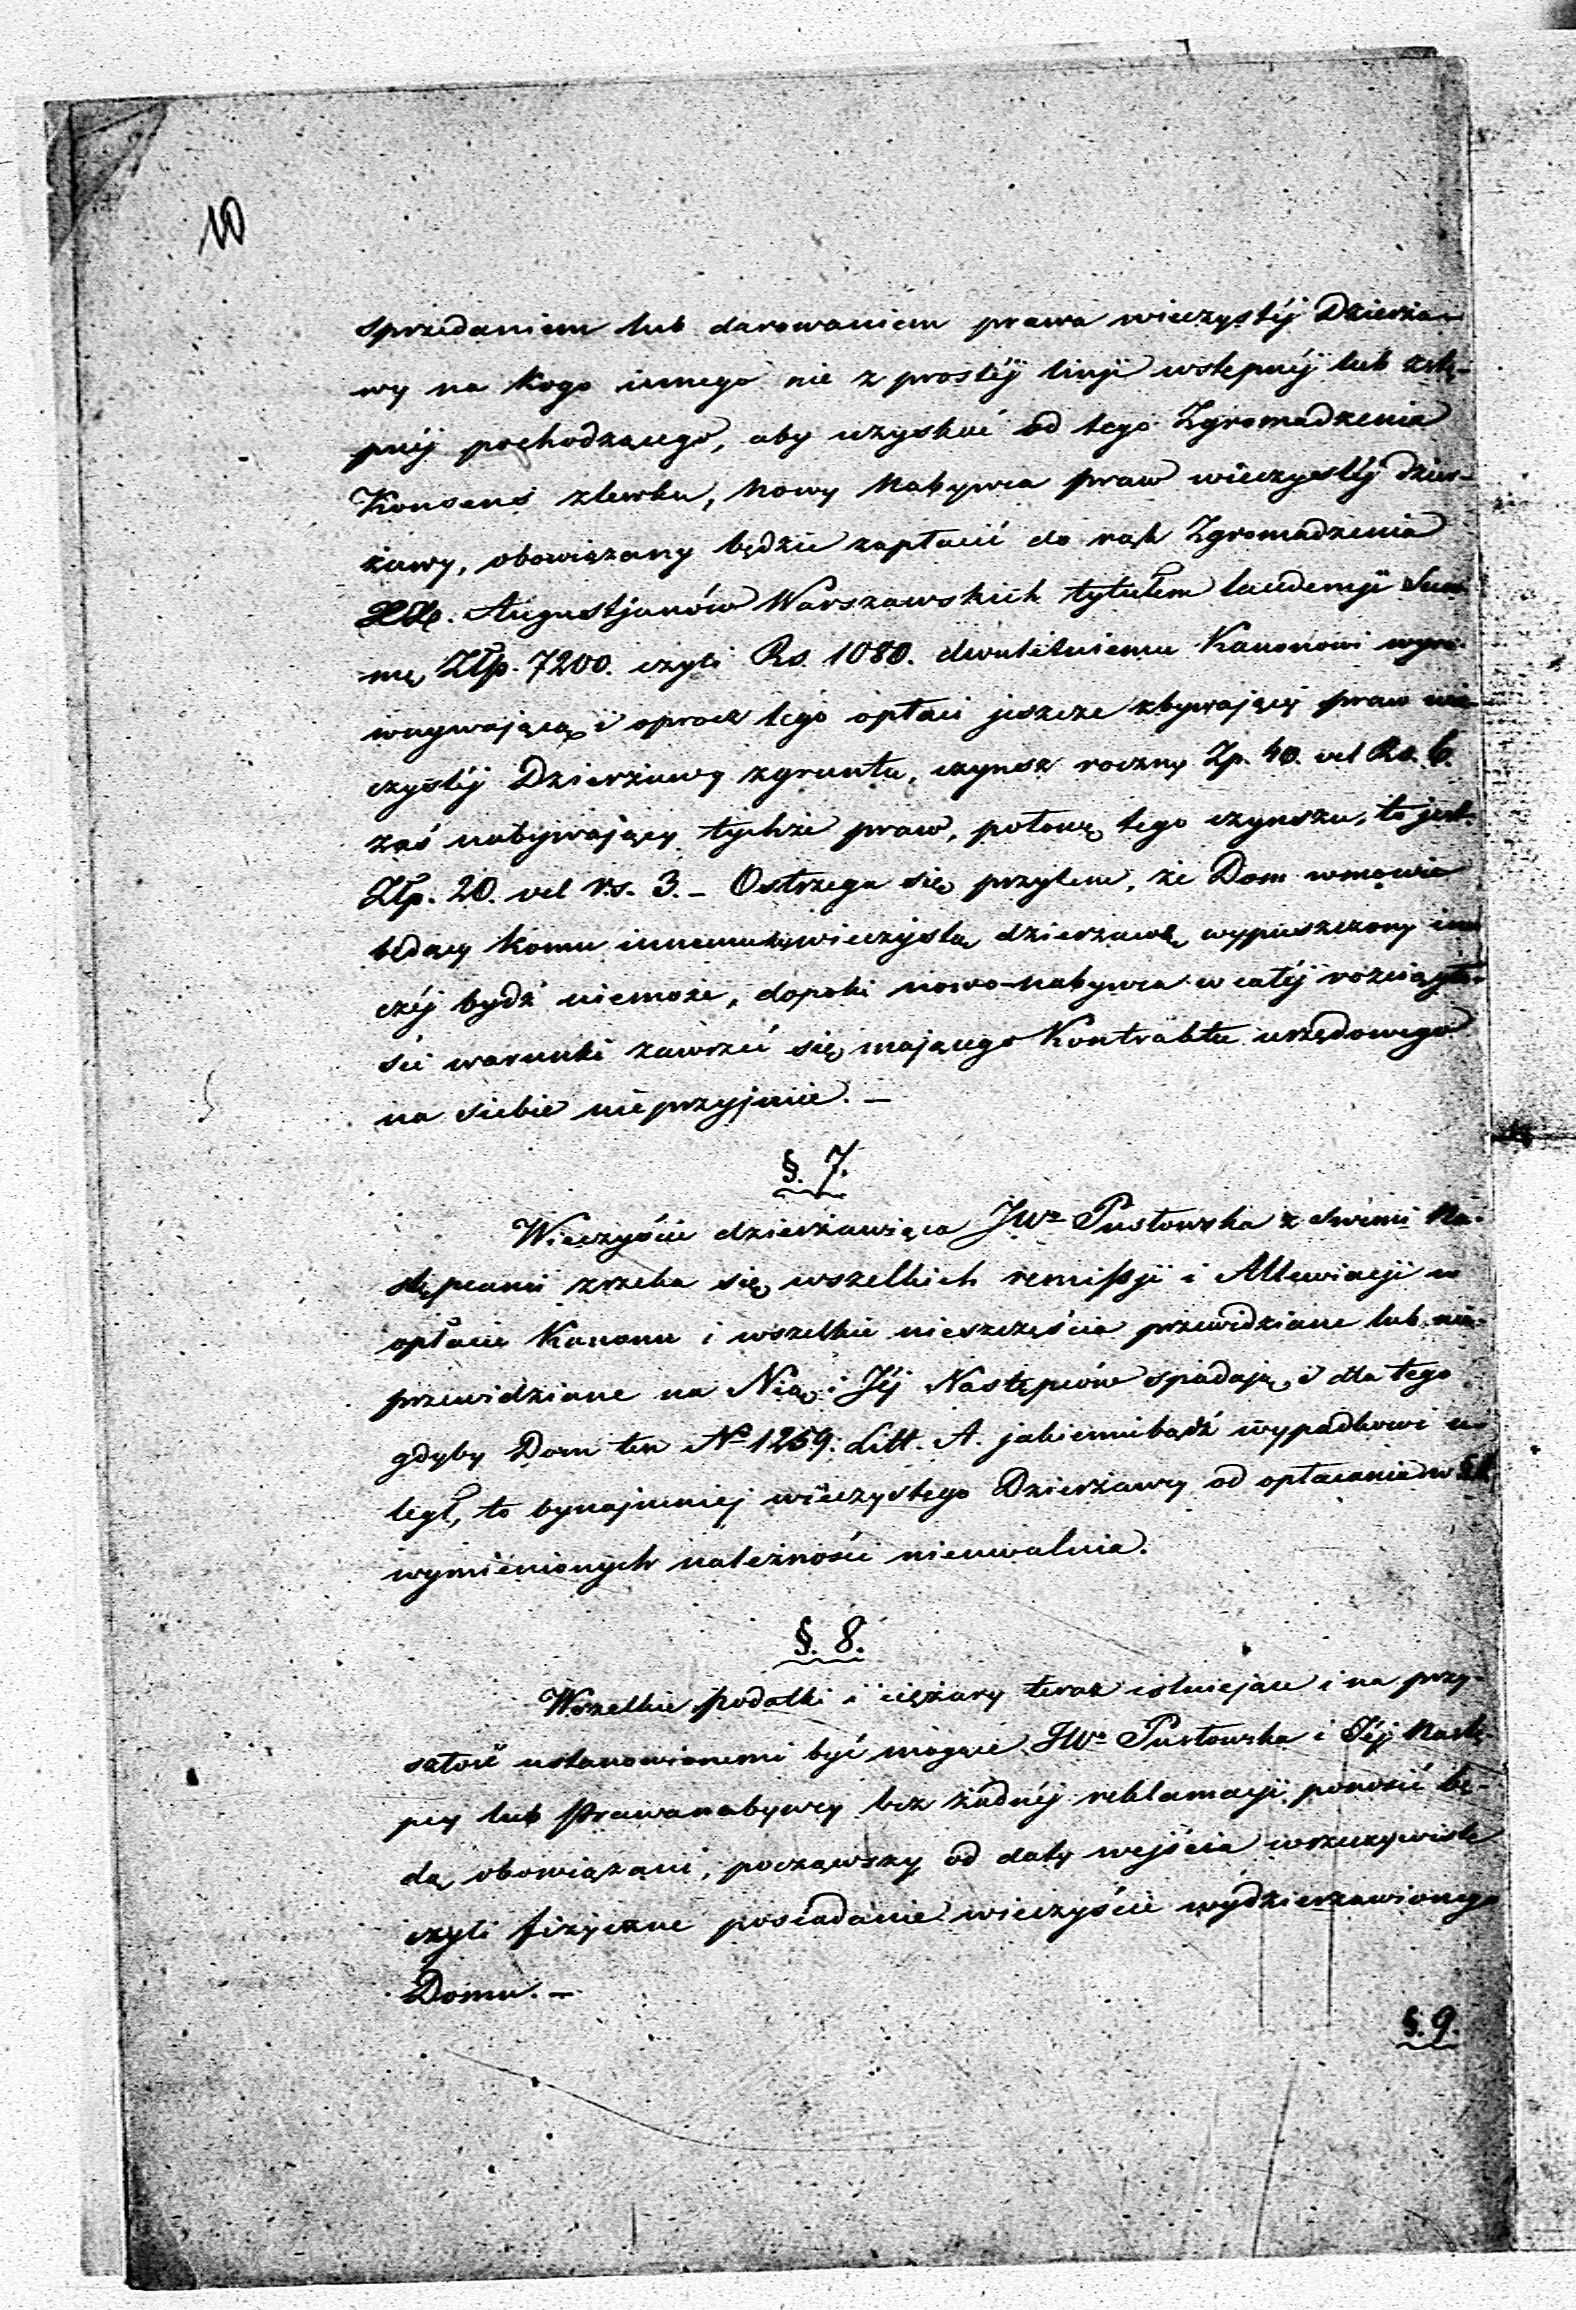 10
sprzedaniem lub darowaniem prawa wieczystéj Dzierża-
wy na kogo innego nie z prostéj linji wstępnéj lub zstę-
pnéj pochodzącego, aby uzyskać od tego Zgromadzenia
Konsens zlewku, nowy Nabywca praw wieczystéj dzier-
żawy, obowiązany będzie zapłacić do rąk Zgromadzenia
XX. Augustjanów Warszawskich tytułem laudemji Sum-
mę Złp. 7200. czyli Rs. 1080. dwuletniemu Kanonowi wyró-
wnywającą i oprocz tego opłaci jeszcze zbywający praw wie-
czystéj Dzierżawy z gruntu, czynsz roczny Zp. 40. vel Rs. 6.
zaś nabywający tychże praw, połowę tego czynszu, to jest.
Złp. 20. vel rs. 3. – Ostrzega się przytem, że Dom wmowie
będący komu innemu wieczystą dzierzawą wypuszczony ina
czéj bydź niemoże, dopoki nowo-nabywca w całéj rozciągło-
ści warunki zawrzeć się mającego Kontraktu urzędowego
na siebie nie przyjmie. –
§. 7.
Wieczyście dzierżawiąca JWa Pustowska z swemi Na-
stępcami zrzeka się wszelkich remissji i Allewiacji w
opłacie Kanonu i wszelkie nieszczęścia przewidziane lub nie-
przewidziane na Nią i Jéj Następców spadają i dla tego
gdyby Dom ten No 1259. Litt. A. jakiemibądź wypadkowi u-
legł, to bynajmniej wieczystego Dzierżawcy od opłacania w §
wymienionych należności nieuwalnia.
§. 8.
Wszelkie podatki i ciężary teraz istniejące i na przy-
szłość ustanowionemi być mogące JWa Pustowska i Jéj Nastę-
pcy lub Prawonabywcy bez żadnéj reklamacji ponosić bę-
dą obowiązani, począwszy od daty wejścia w rzeczywiste
czyli fizyczne posiadanie wieczyście wydzierzawionego
Domu. –
§. 9.